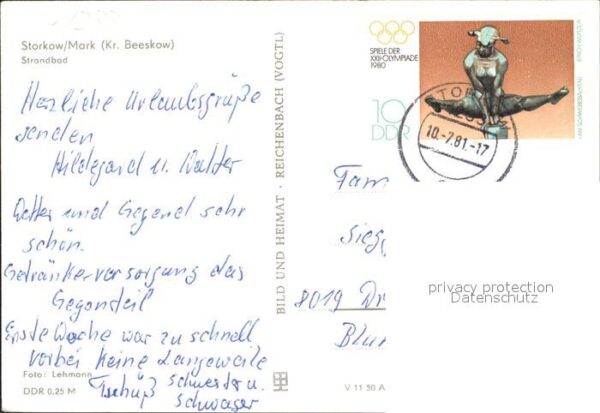 Storkow/Mark (Kr. Beeskow)
Strandbad
Herzliche Urlaubsgrüße
senden
Hildegard u. Walter
Wetter und Gegend sehr
schön.
Getränkeversorgung das
Gegenteil
Erste Woche war zu schnell
vorbei keine Langeweile
Tschüß Schwester u.
Schwager
Foto: Lehmann
DDR 0,25 M
BILD UND HEIMAT · REICHENBACH (VOGTL)
V 11 50 A
SPIELE DER
XXII. OLYMPIADE
1980
10
DDR
STORKOW
10.-7.81.-17
Fam
Sieg
8019 Dr
Blum
privacy protection
Datenschutz